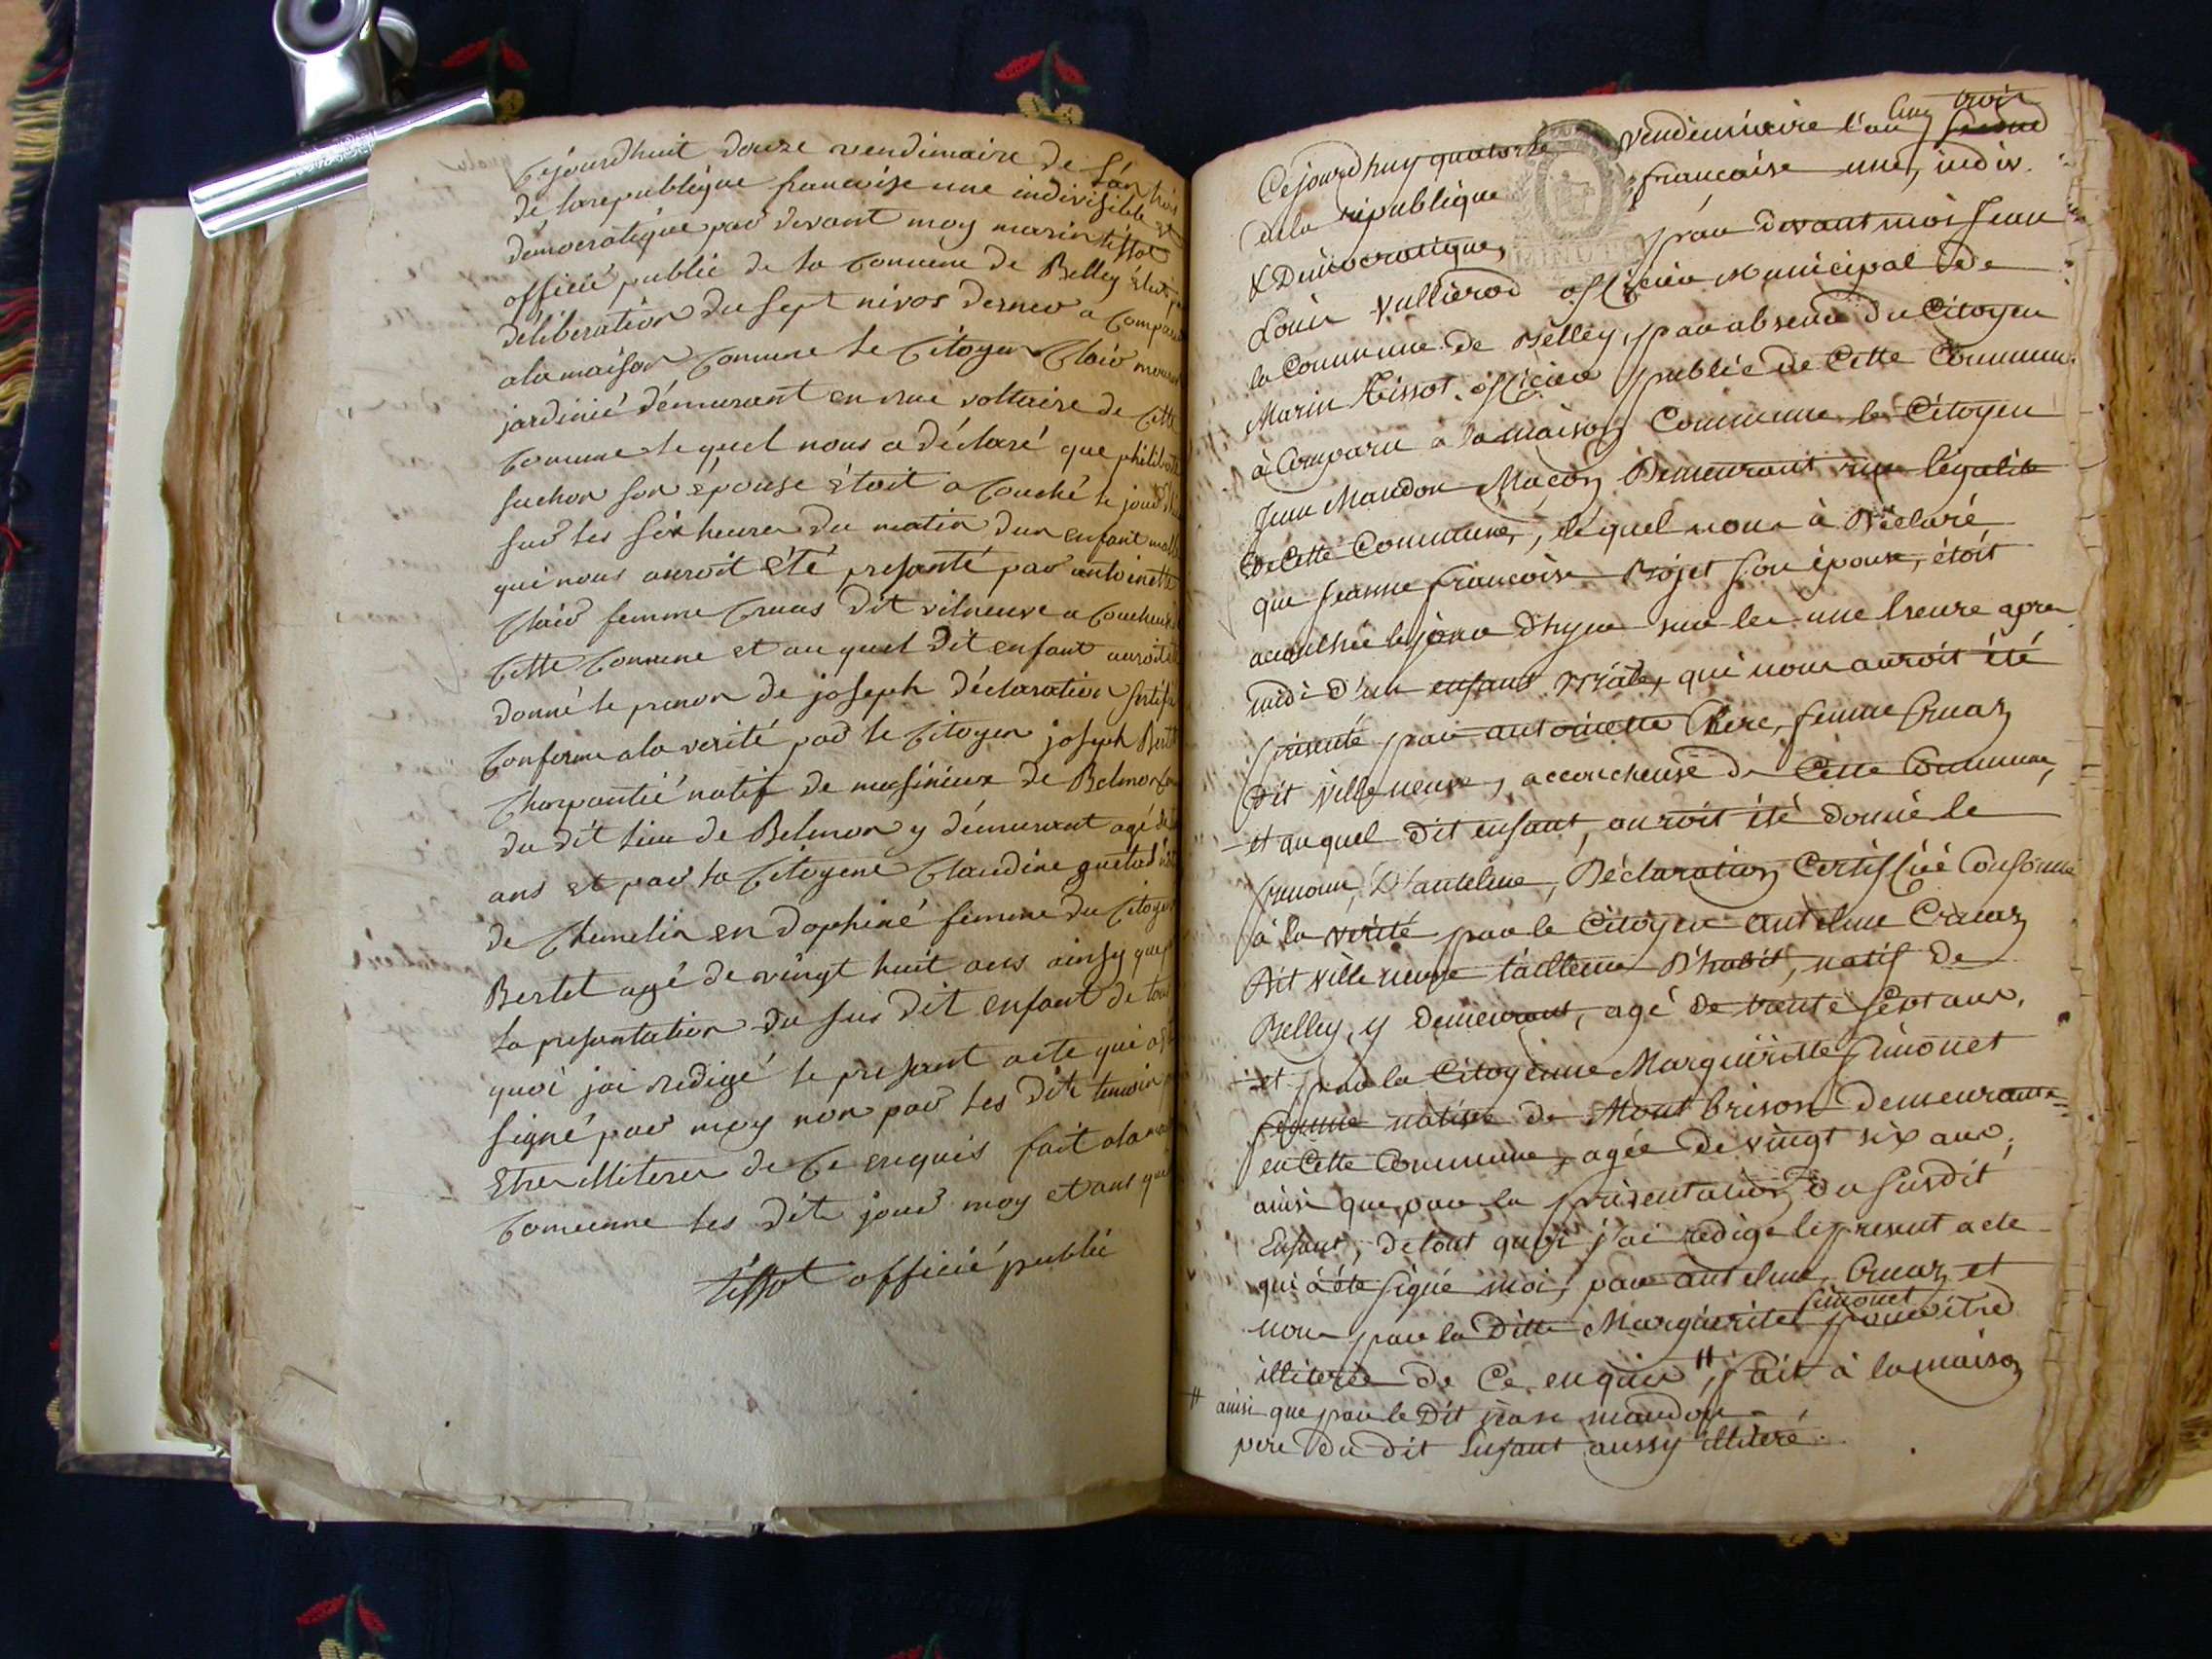 Cejourdhuit douze vendimaire de Lán trois
de larepubliqúe francoise une indivisible et
democratiqúe par devant moy marin tissot
officié public de la Comune de Belley élut par
déliberation du sept nivos dernier a Comparu
ala maison Comune le Citoyen Clair
jardinié démurant en rue voltaire de Cette
Comune le quel nous a déclaré que philiberte
suchon son épouse étoit a Couché le jour
sur les six heures du matin dun enfant malle
qui nous auroit été presanté par antoinette
Clair femme Cruas dit vilneuve a Coucheuse
Cette Comune et au quel dit enfant auroit
donné le prenon de joseph déclaration sertifié
Conforme ala verité par le Citoyen joseph Bertet
Charpantié natif de musinieux de Belmon
du dit lieu de Belmon y démurant agé de
ans et par la Citoyene Claudine guetat
de Chimelin en dophiné femme du Citoyen
Bertet agé de vingt huit ans ainsy que
la presantation du sus dit enfant de tout
quoi jai redigé le presant acte qui a
signé par moy non par les dits temoin
Etre illiterer de Ce enquis fait ala
Comeunne les dits jour moy et ans que
tissot officié public
Cejourdhuy quatorze vendémiaire l'an trois
de la république française une, indiv.
& Démocratique, par devant moi Jean
Louis Vullierod officier Municipal de
la Commune de Belley, par absence du Citoyen
Marin Tissot officier public de Cette Commune
à Comparu à la maison Commune le Citoyen
Jean Mandon Maçon Demeurant rue légalité
de Cette Commune, lequel nous à Déclaré
que Jeanne françoise Rojet son épouse, étoit
accouchée le jour d'hyer sur les une heure apres
midi d'un enfant Mâle, qui nous auroit été
présenté par antoinette Clerc, femme Cruaz
Dit Villeneuve, accoucheuse de Cette Commune,
et auquel dit enfant, auroit été donné le
prénom, D'antelme, Déclaration Certiffiée Conforme
à la verité par le Citoyen antelme Cruaz
Dit Villeneuve tailleur D'habit, natif de
Belley, y demeurant, agé de trente sept ans,
et par la Citoyenne Marguéritte Simonet
femme native de Montbrison demeurante
en Cette Commune, agée de vingt six ans,
ainsi que par la présentation du susdit
Enfant, de tout quoi j'ai rédigé le present acte
qui à été signé moi, par antelme Cruaz et
non par la ditte Marguérite simonet pour être
illiterée de Ce enquis #, fait à la maison
# ainsi que par le Dit jean mandon
pere du dit Enfant aussy illiteré.